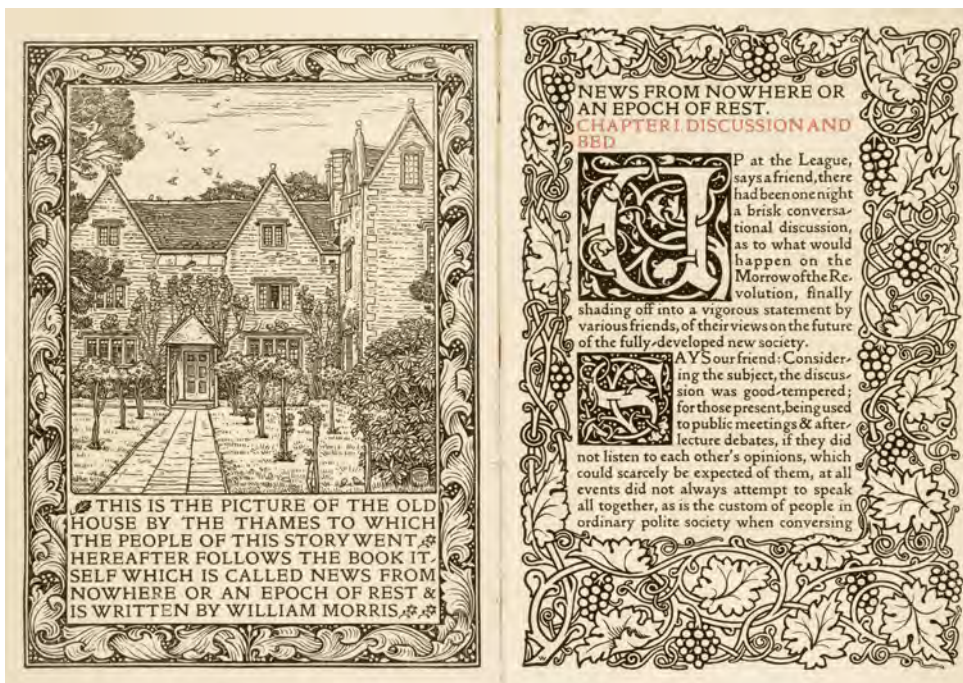 THIS IS THE PICTURE OF THE OLD
HOUSE BY THE THAMES TO WHICH
THE PEOPLE OF THIS STORY WENT
HEREAFTER FOLLOWS THE BOOK IT-
SELF WHICH IS CALLED NEWS FROM
NOWHERE OR AN EPOCH OF REST &
IS WRITTEN BY WILLIAM MORRIS
NEWS FROM NOWHERE OR
AN EPOCH OF REST.
CHAPTER I. DISCUSSION AND
BED
UP at the League,
says a friend, there
had been one night
a brisk conversa-
tional discussion,
as to what would
happen on the
Morrow of the Re-
volution, finally
shading off into a vigorous statement by
various friends, of their views on the future
of the fully-developed new society.
SAYS our friend: Consider-
ing the subject, the discus-
sion was good-tempered;
for those present, being used
to public meetings & after-
lecture debates, if they did
not listen to each other's opinions, which
could scarcely be expected of them, at all
events did not always attempt to speak
all together, as is the custom of people in
ordinary polite society when conversing